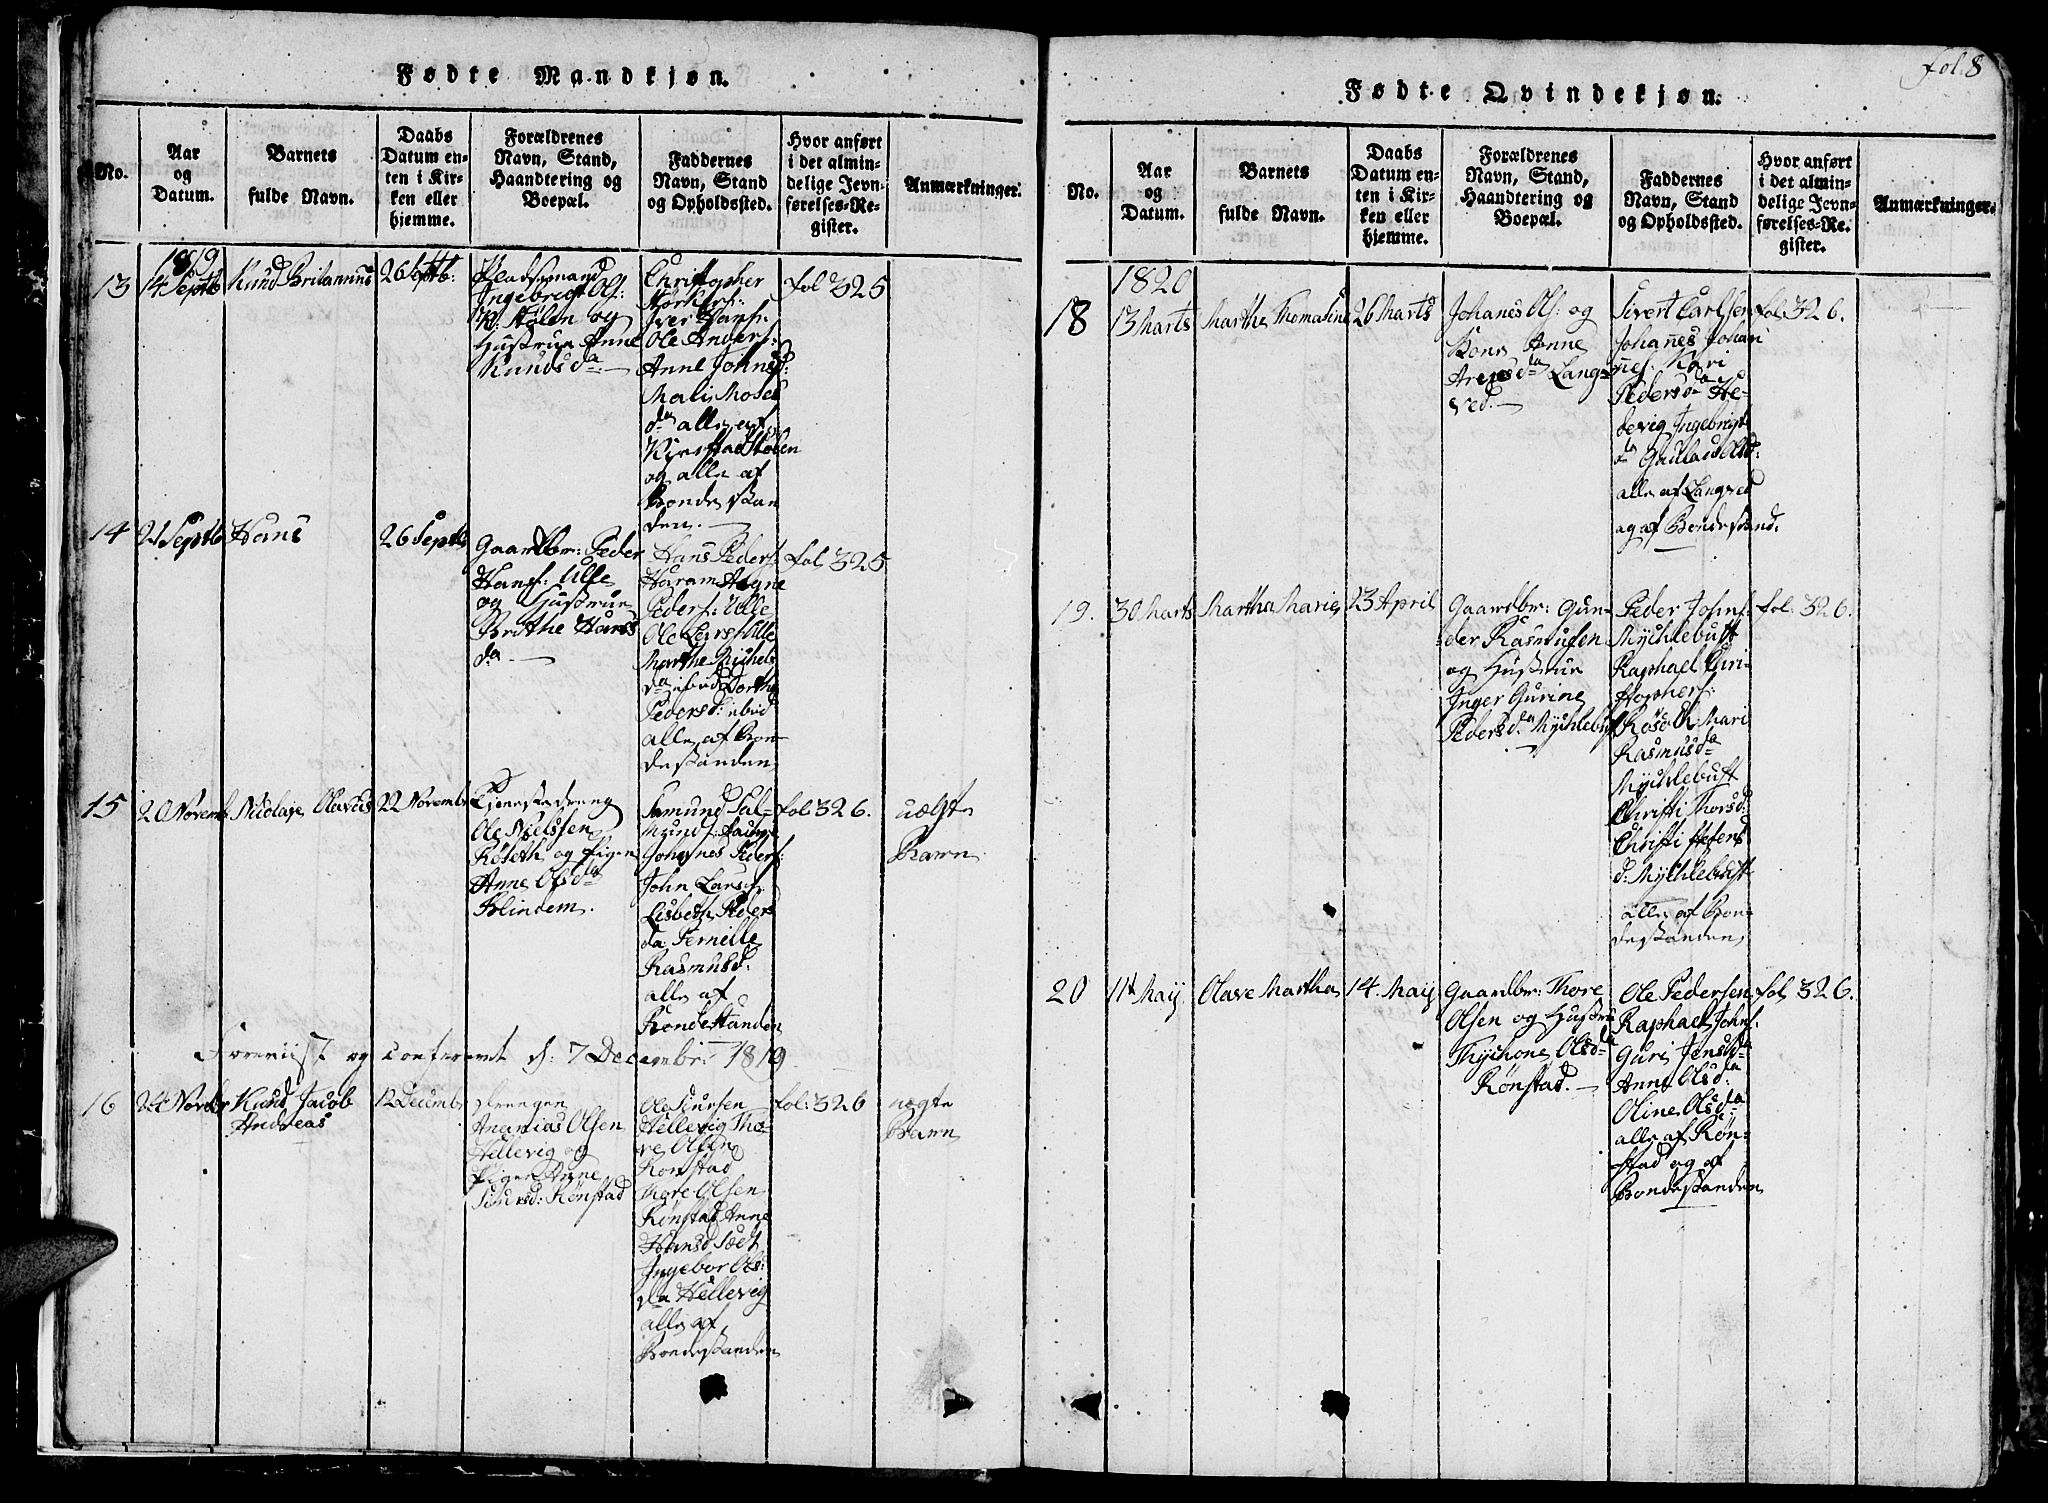 Fødte Mandkjøn.
No.
Aar
og
Datum.
Barnets
fulde Navn.
Daabs
Datum en-
ten i Kir-
ken eller
hjemme.
Forældrenes
Navn, Stand,
Haandtering og
Boepæl.
Faddernes
Navn, Stand
og Opholdssted.
Hvor anført
i det almin-
delige Jevn-
førelses-Re-
gister.
Anmærkninger.
1819
13
14 Septb
Knud Britannus
26 Septb:
Pladsemand
Ingebrigt Ols:
og
Hustrue Anne
Knudsda:
Christopher
Iver Hans:
Ole Anders:
Anne Johnsd:
Mali Moses
da alle af
og alle af
Bonde stan
den.
fol 325
14
21 Septb
Hans
26 Septb
Gaardbr: Peder
Hans: Ulle
og Hustrue
Brithe Hans
da
Hans Peders:
Haram
Peders: Ulle
Ole Lars Ulle
Marthe Michels
da ibid Dorthe
Pedersd: ibid
alle af Bon-
destanden
fol 325
15
20 Novemb
Nicolaje Olavus
22 Novembr
Tjenestedreng
Ole Nielssen
Röseth og Pigen
Anne Olsda
Blindem.
Samund Sal-
mund:
Johannes Peders:
John Lars:
Lisbeth Peders
da Pernille
Rasmusd:
alle af
Bondestanden
fol 326.
uægte
Barn
og Confereret d: 7 December 1819
16
24 Novbr
Knud Jacob
Andreas
12 Decembr
drengen
Ananias Olsen
Hellevig og
Pigen Anne
Siursd: Rönstad
Ole Siursen
Hellevig Tho-
re Olsen
Rönstad
Thore Olsen
Rönstad Anne
Hansd: Sæt
Ingebor Ols:
da Hellevig
alle af
Bondestanden
fol: 326
uægte
Barn
fol. 8
Fødte Qvindekjøn.
No.
Aar
og
Datum.
Barnets
fulde Navn.
Daabs
Datum en-
ten i Kir-
ken eller
hjemme.
Forældrenes
Navn, Stand,
Haandtering og
Boepæl.
Faddernes
Navn, Stand
og Opholdssted.
Hvor anført
i det almin-
delige Jevn-
førelses-Re-
gister.
Anmærkninger.
1820
18
13 Marts
Marthe Thomasine
26 Marts
Johanes Ols: og
Kone Anne
Arnesda Lang-
ved.
Sivert Carlsen
Johanes Johan
nes: Kari
Pedersda He-
devig Ingebrigt
da Gunlaus Olsd:
alle af Langved
og af Bondestand.
fol: 326.
19.
30 Marts
Martha Marie
23 April
Gaardbr: Gun-
der Rasmusen
og Hustrue
Inger Gurine
Pedersda: Mychlebust
Peder Johns:
Mychlebust
Raphael Chri-
stophers:
Mari
Rasmusda
Mychlebust
Christi Thorsd:
Christi
d: Mychlebust
alle af Bon-
destanden
fol: 326.
20
11t May
Olave Martha
14. May
Gaardbr: Thore
Olsen og Hustru
Thychone Olsda
Rönstad.
Ole Pedersen
Raphael Johns:
Guri Jensda
Anne Olsda:
Oline Olsda
alle af Rön-
stad og af
Bondestanden
fol 326.